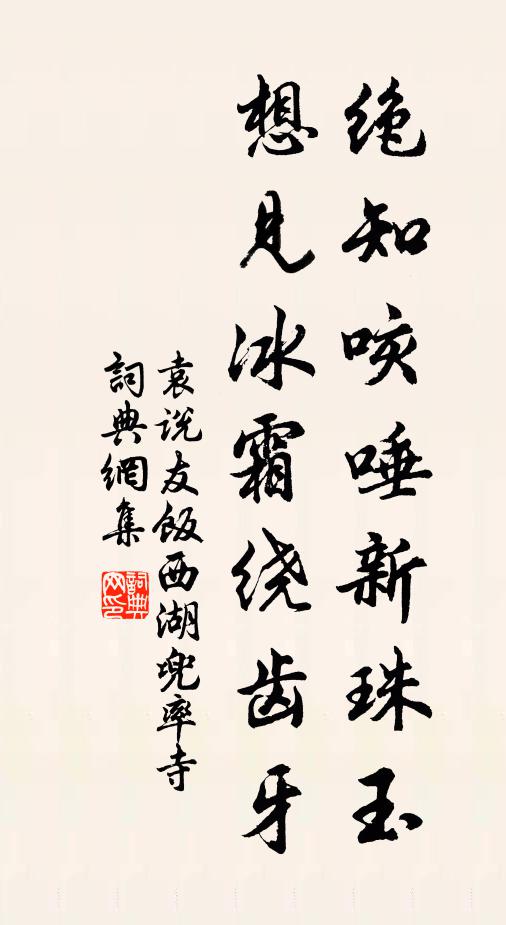 绝知咳唾新珠玉
想见冰霜绕齿牙
袁说友饭西湖兜率寺
詞典網集
詞典网印